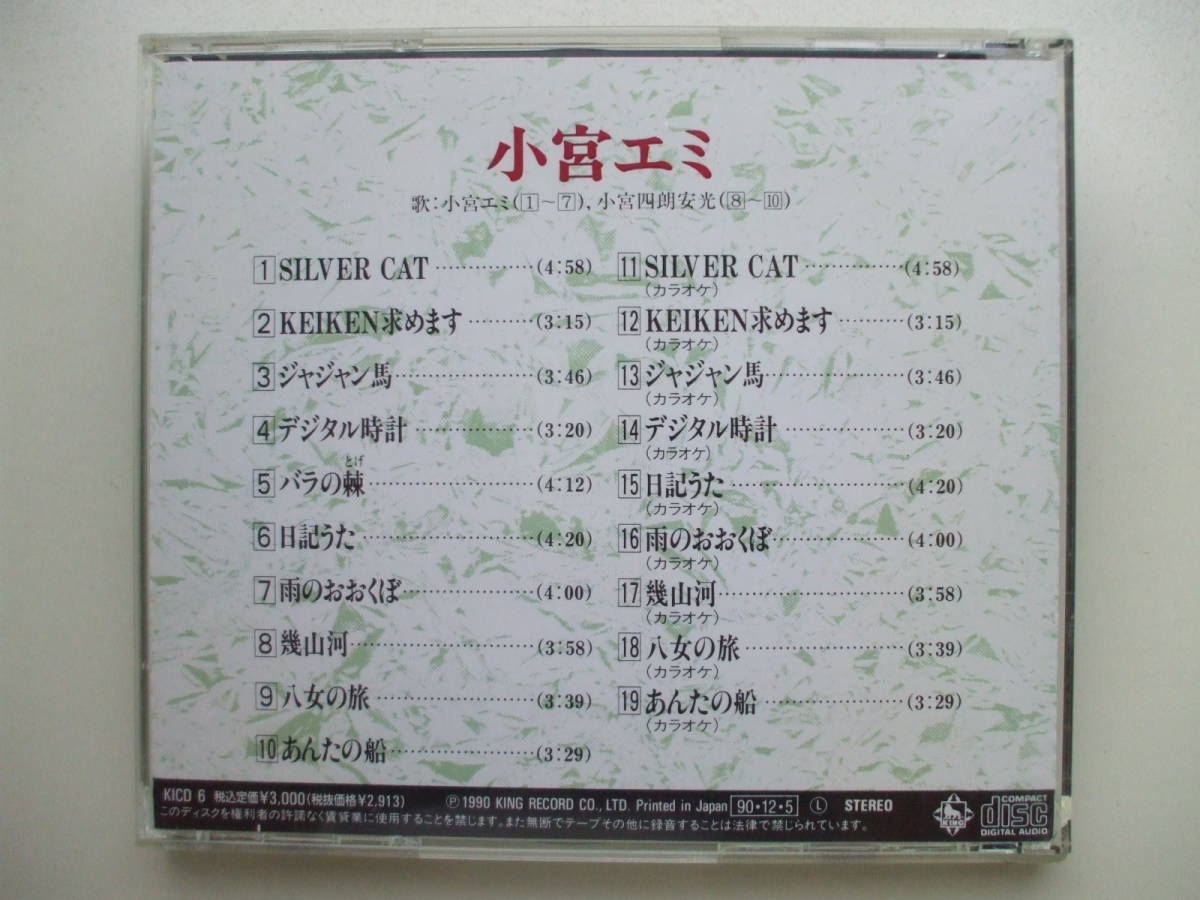 小宮エミ
歌:小宮エミ(1~7), 小宮四朗安光(8~10)
1 SILVER CAT ……………(4:58)
2 KEIKEN求めます ………(3:15)
3 ジャジャン馬……………(3:46)
4 デジタル時計 ……………(3:20)
とげ
5 バラの棘…………………(4:12)
6 日記うた …………………(4:20)
7 雨のおおくぼ……………(4:00)
8 幾山河……………………(3:58)
9 八女の旅 …………………(3:39)
10 あんたの船………………(3:29)
11 SILVER CAT ……………(4:58)
(カラオケ)
12 KEIKEN求めます ………(3:15)
(カラオケ)
13 ジャジャン馬……………(3:46)
(カラオケ)
14 デジタル時計 ……………(3:20)
(カラオケ)
15 日記うた …………………(4:20)
(カラオケ)
16 雨のおおくぼ……………(4:00)
(カラオケ)
17 幾山河……………………(3:58)
(カラオケ)
18 八女の旅 …………………(3:39)
(カラオケ)
19 あんたの船 ………………(3:29)
(カラオケ)
KICD 6 税込定価¥3,000(税抜価格¥2,913) Ⓟ1990 KING RECORD CO., LTD. Printed in Japan 90・12・5 Ⓛ STEREO
このディスクを権利者の許諾なく賃貸業に使用することを禁じます。また無断でテープその他に録音することは法律で禁じられています。
KING
COMPACT
disc
DIGITAL AUDIO